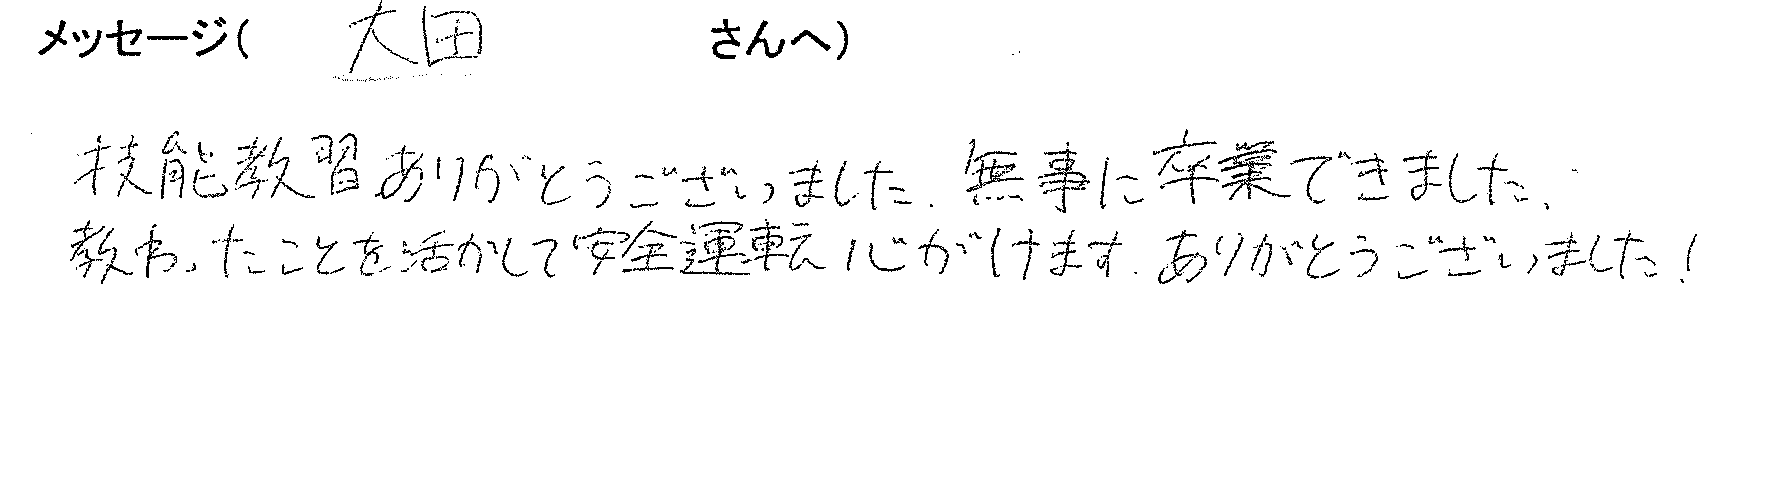 メッセージ( 大田 さんへ)
技能教習ありがとうございました.無事に卒業できました.
教わったことを活かして安全運転心がけます.ありがとうございました!